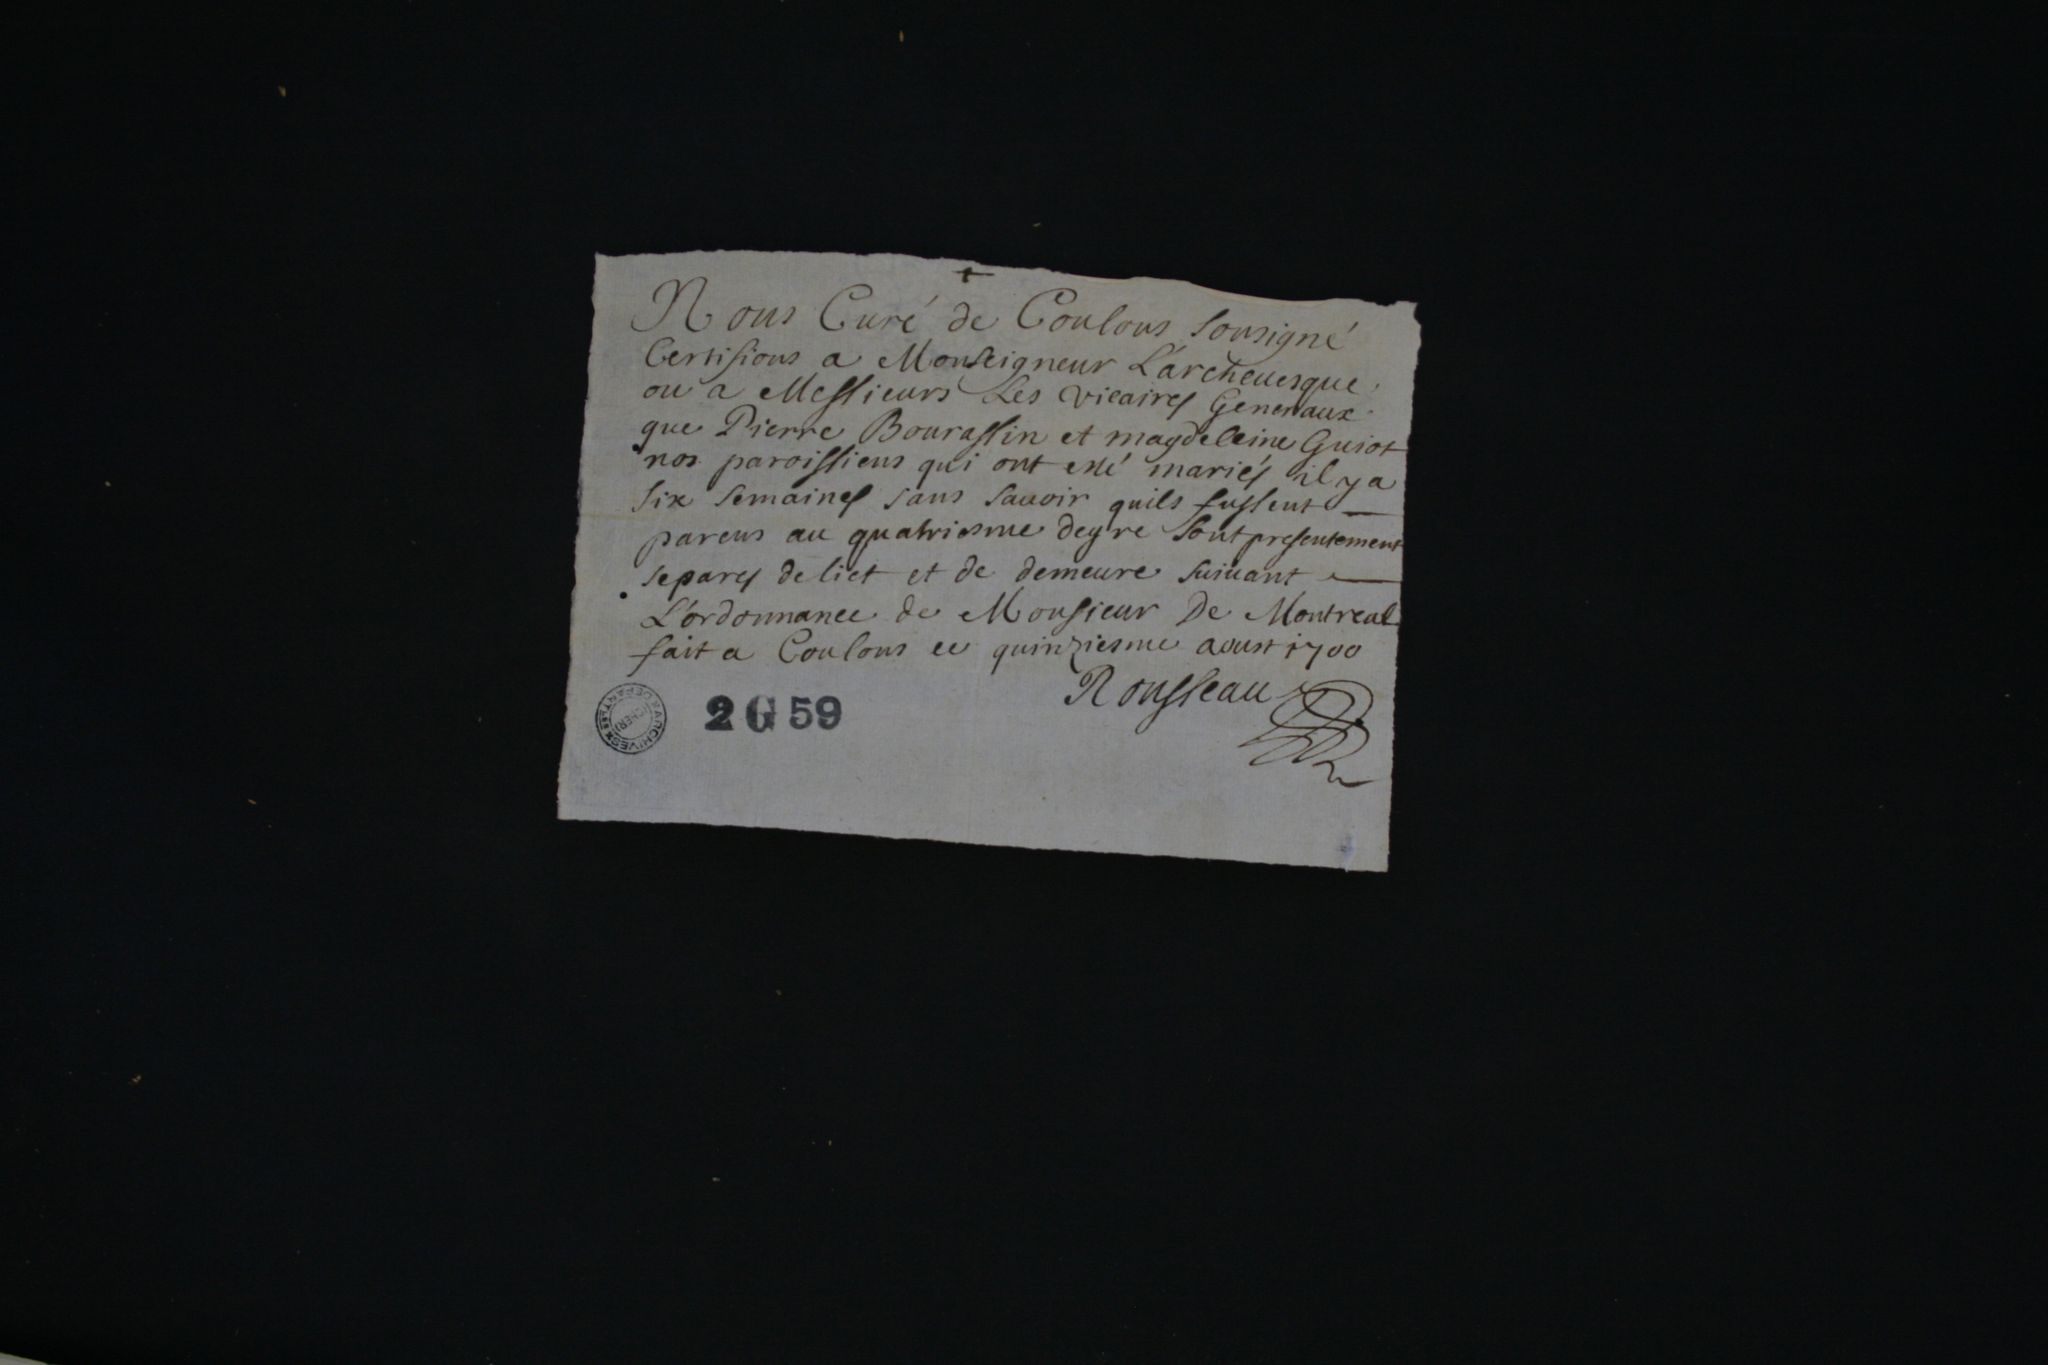 +
Nous Curé de Coulons sousigné
Certifions a Monseigneur L'archeuesque
ou a Messieurs Les vicaires Generaux
que Pierre Bourassin et magdeleine Guiot
nos paroissiens qui ont esté mariés il y a
six semaines sans sauoir quils fussent
parens au quatriesme degre sont presentement
separes de lict et de demeure suiuant
L'ordonnance de Monsieur De Montreal
fait a Coulons ce quinziesme aoust 1700
Rousseau
ARCHIVES DEPARTLES (CHER)
2 G 59